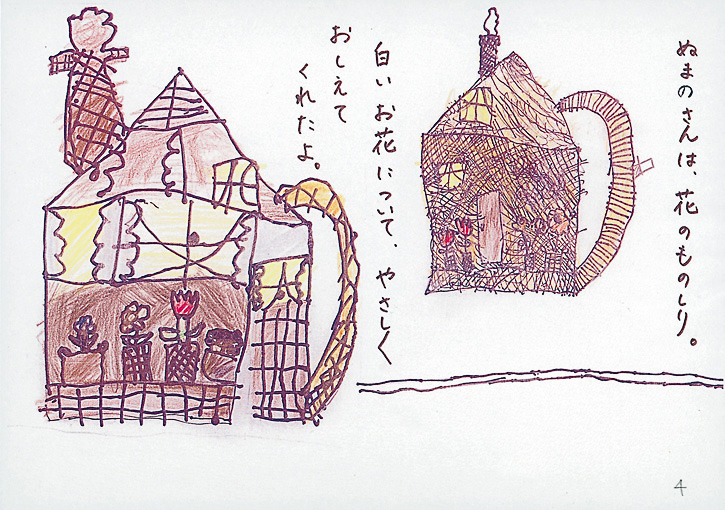 ぬまのさんは、花のものしり。
白いお花について、やさしく
おしえて
くれたよ。
4